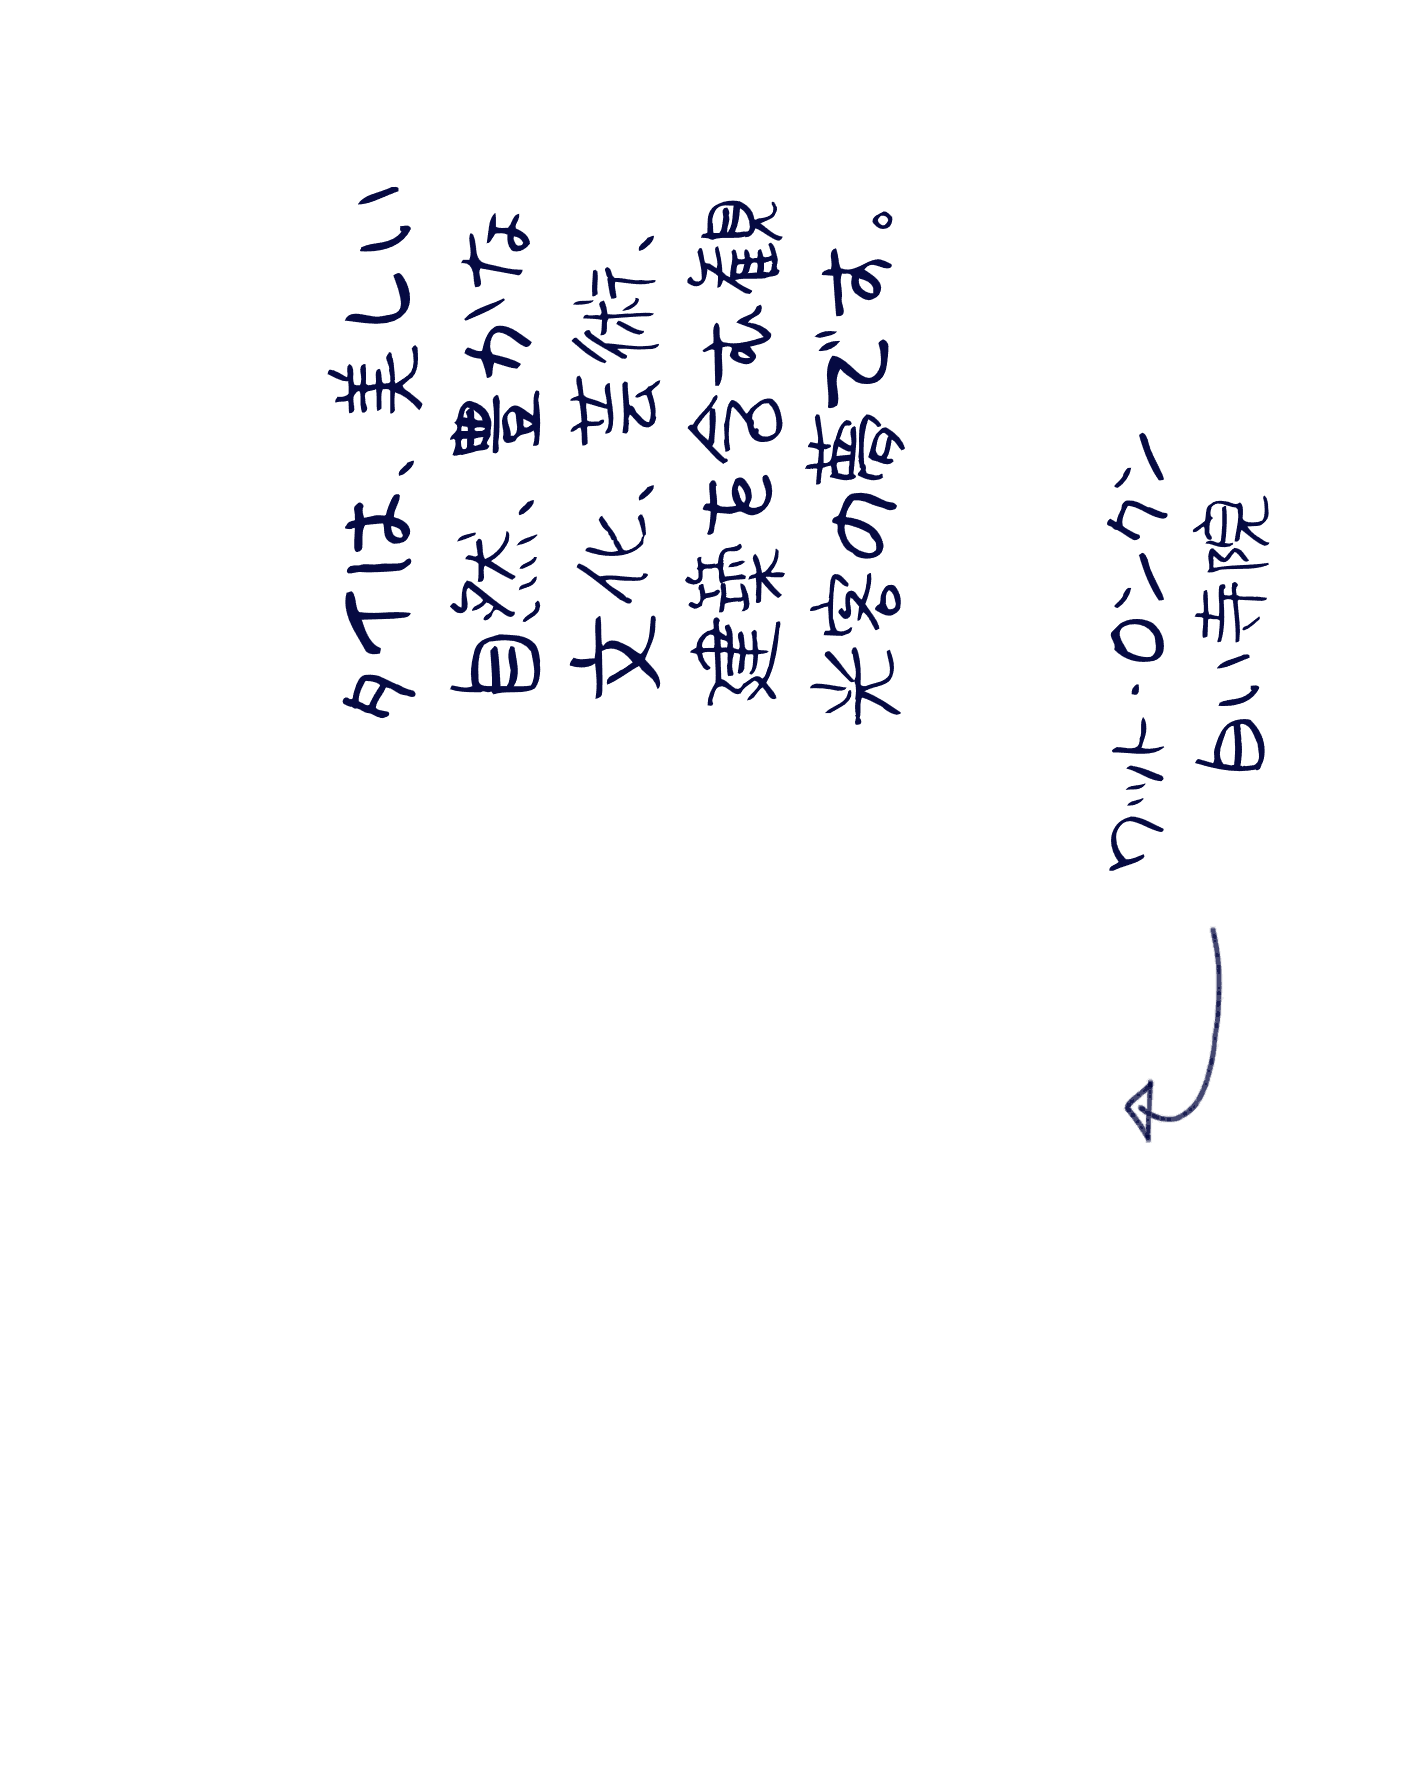 タイは、美しい
自然、豊かな
文化、芸術、
建築を含む観
光客の夢です。
ワット・ロンクン
白い寺院